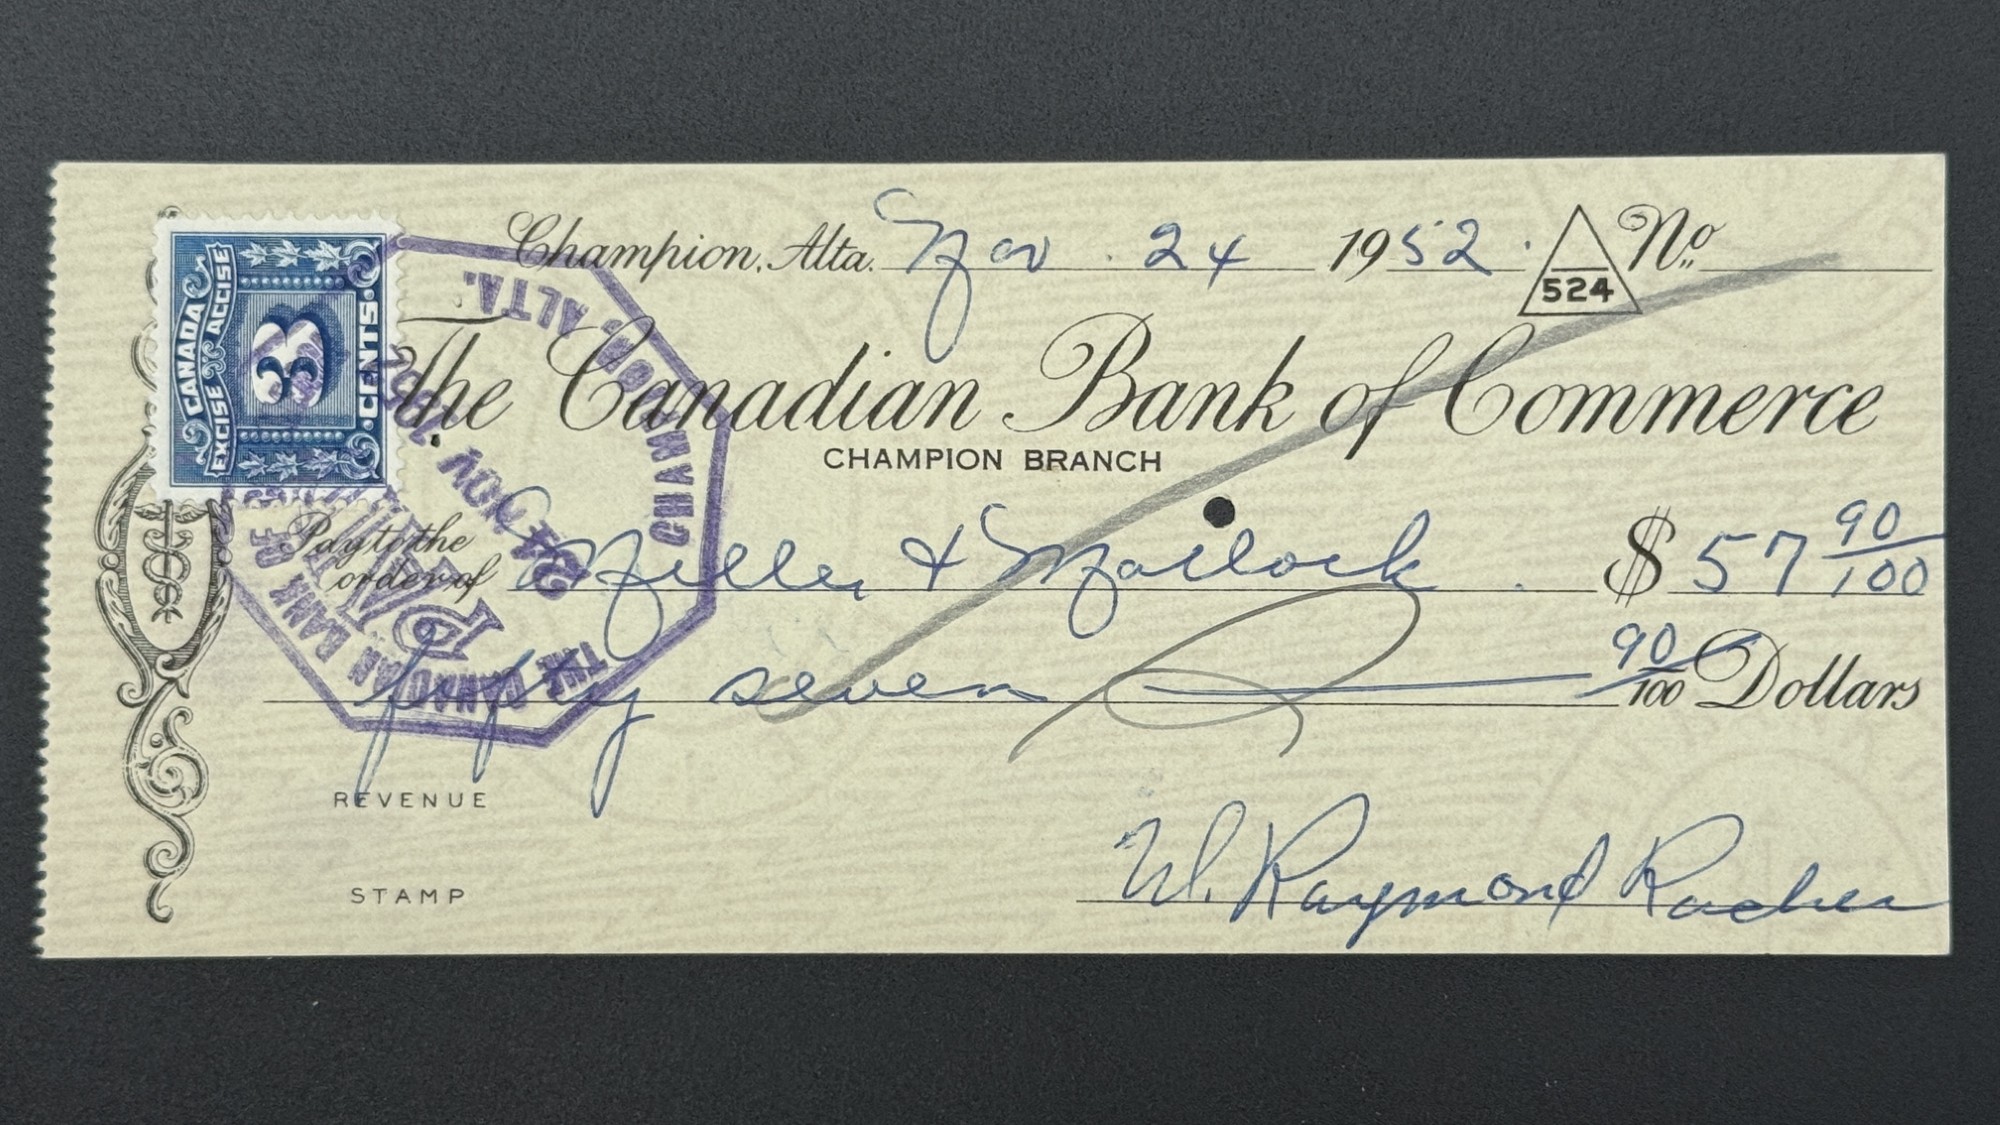 Champion, Alta. Nov. 24 1952. No.
524
The Canadian Bank of Commerce
CHAMPION BRANCH
Pay to the
order of Miller & Matlock. $ 57 90/100
fifty seven 90/100 Dollars
REVENUE
STAMP
W. Raymond
CANADA
EXCISE ACCISE
3
CENTS
THE CANADIAN BANK OF
CHAMPION, ALTA.
PAID
24 NOV 1952